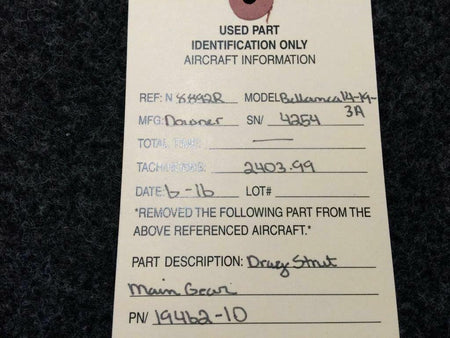 USED PART
IDENTIFICATION ONLY
AIRCRAFT INFORMATION
REF: N 8892R MODEL Bellanca 14-19-
3A
MFG: Downer SN/ 4254
TOTAL TIME: —
TACH/HOBBS: 2403.99
DATE: 6-16 LOT#
*REMOVED THE FOLLOWING PART FROM THE
ABOVE REFERENCED AIRCRAFT.*
PART DESCRIPTION: Drag Strut
Main Gear
PN/ 19462-10